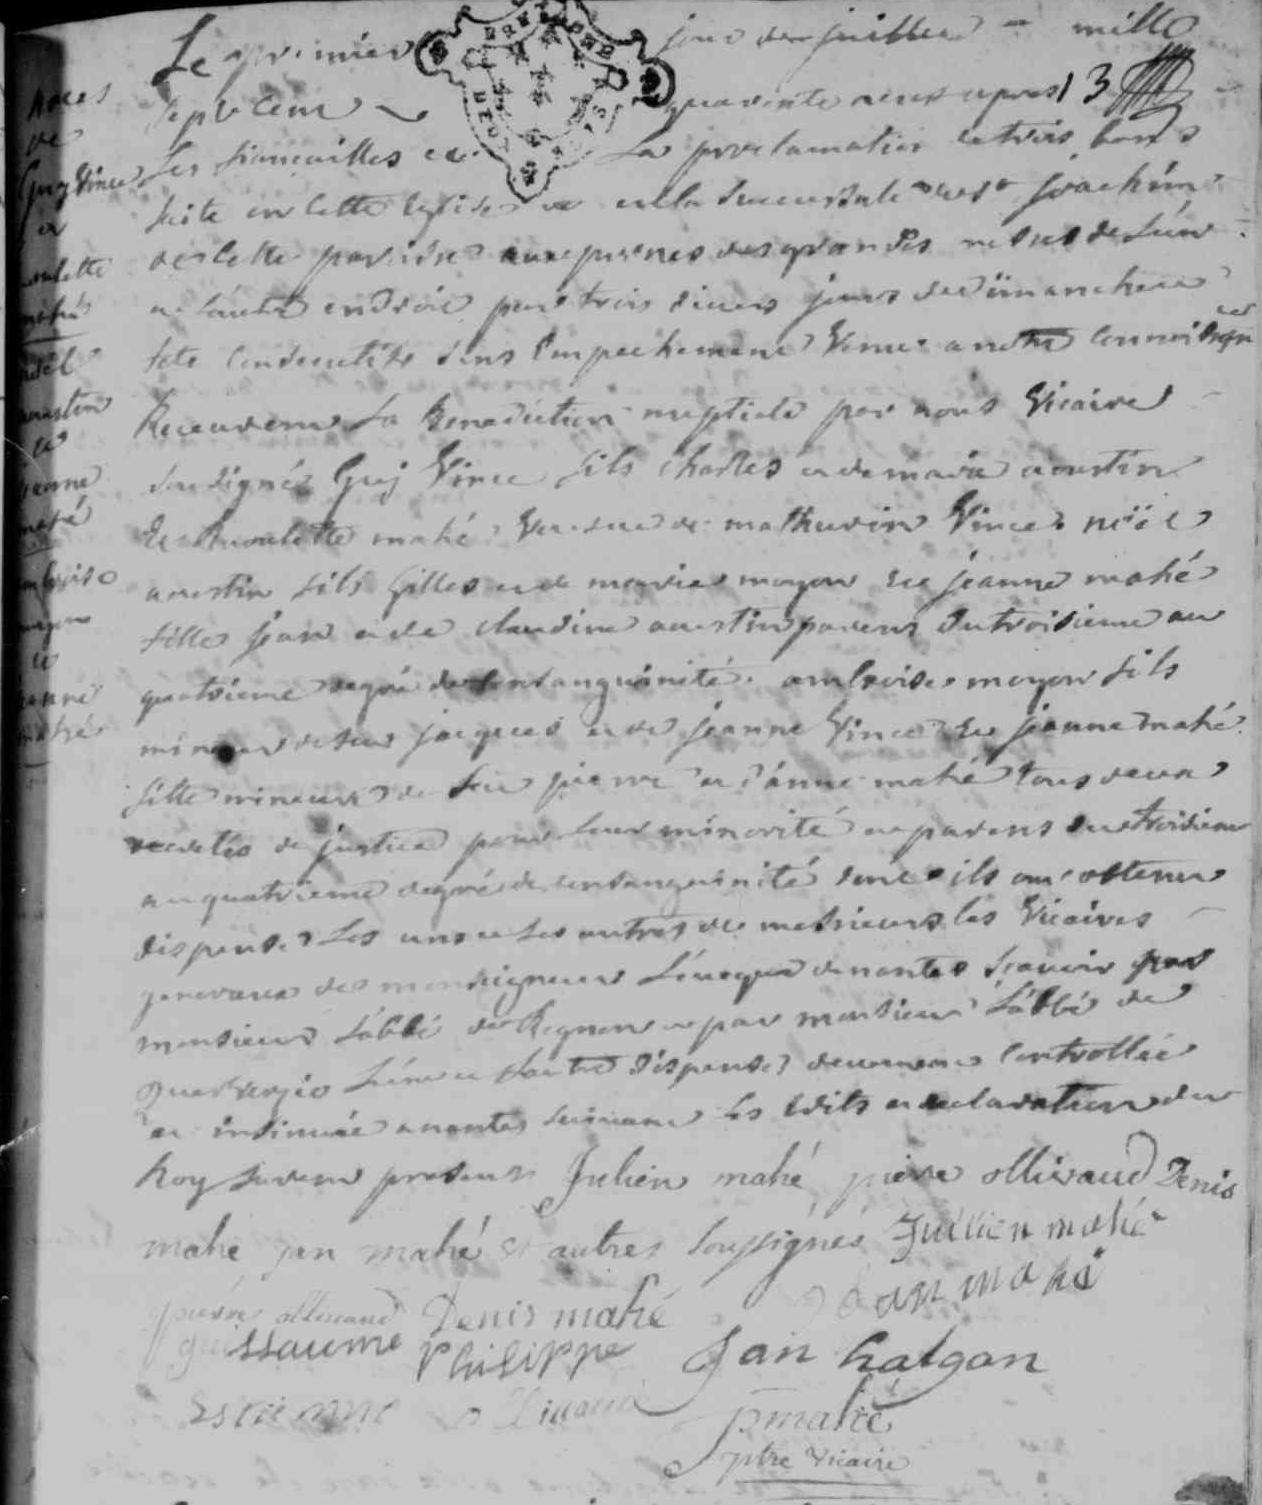 Le premier jour de juillet mille
sept cent quarente neuf apres 13
les fiancailles et la proclamation de trois bans
faite en cette Eglise et en la succursale de st joachim
de cette paroisse aux prones des grandes messes de l'un
et l'autre endroit par trois divers jours de dimanche et
fete consecutifs sans empechement venu a notre connoissance
Recevrent la Benediction nuptiale par nous Vicaire
soussigné Guy Vince fils charles et de marie aoustin
et Perrine mahé Veusve de mathurin Vince, noël
aoustin fils Gilles et de marie moyon et jeanne mahé
fille jean et de claudine aoustin parens du troisieme au
quatrieme degré de consanguinité. ambroise moyon fils
mineur de feu jacques et de jeanne Vince et jeanne mahé
fille mineure de feu pierre et d'anne mahé tous deux
decretés de justice pour leur minorité et parens du troisieme
au quatrieme degré de consanguinité dont ils ont obtenu
dispense les uns et les autres de messieurs les Vicaires
generaux de monseigneur L'eveque de nantes scavoir par
monsieur L'abbé de Regnon et par monsieur L'abbé de
L'une et L'autre dispense deument controllée
et insinuée a nantes suivant les Edits et declaration du
Roy furent presens Julien mahé pierre ollivaud Denis
mahe jan mahé et autres soussignés Jullien mahé
pierre ollivaud Denis mahé Jan mahé
guillaume Philippe Jan halgan
Estienne ollivaud
P mahé
ptre Vicaire
Guy Vince
et
mahé
noël
aoustin
et
jeanne
mahé
ambroise
moyon
et
jeanne
mahé